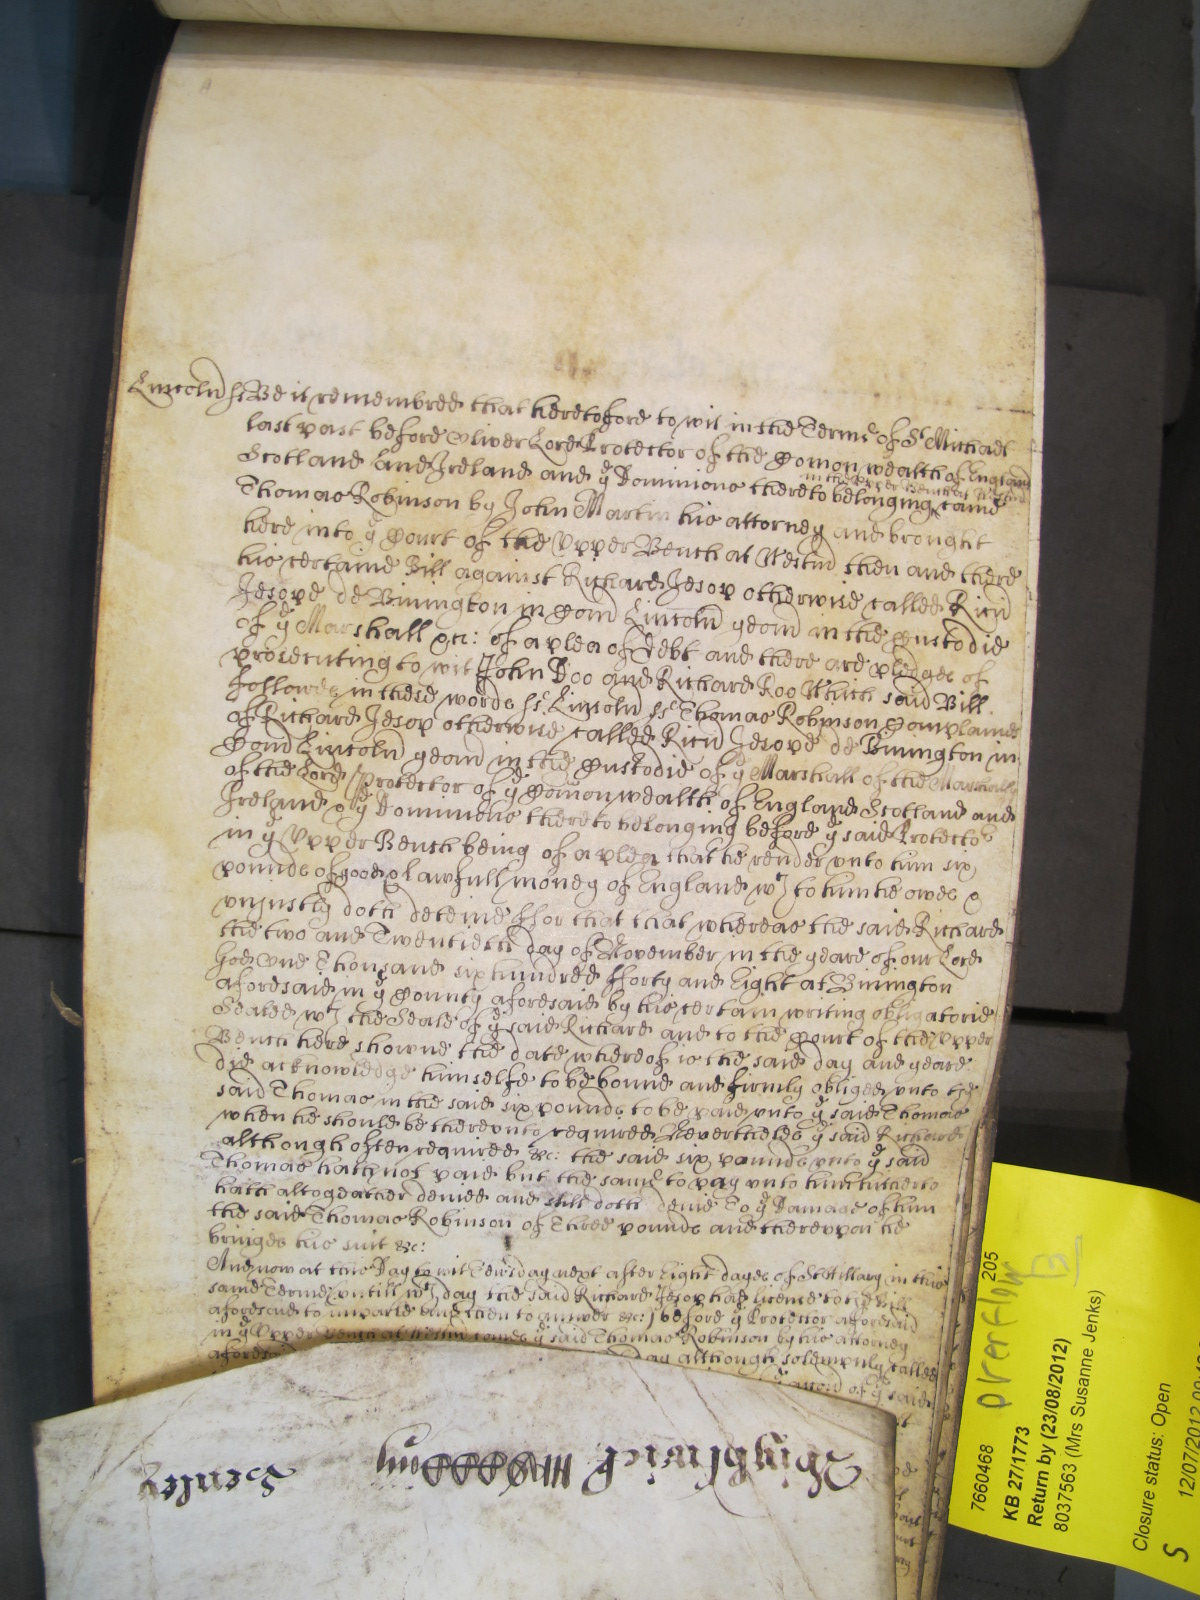 Lincoln ss Be it remembred that heretofore to wit in the Terme of St Michaell
last past before Oliver Lord Protector of the Comon wealth of England
Scotland and Ireland and ye Dominions thereto belonging came
in the upper Bench at Westm
Thomas Robinson by John Martin his attorney and brought
here into ye Court of the Upper Bench at Westm then and there
his certaine Bill against Richard Jesop otherwise called Ricd
Jesope de Binington in Com Lincoln yeom in the Custodie
of ye Marshall &c: of a plea of Debt and there are pledges of
prosecuting to wit John Doo and Richard Roo Which said Bill
followes in these words ss: Lincoln ss Thomas Robinson Complaines
of Richard Jesop otherwise called Ricd Jesope de Binington in
Com Lincoln yeom in the Custodie of ye Marshall of the Marshalls
of the Lord Protector of ye Comon wealth of England Scotland and
Ireland & ye Dominions thereto belonging before ye said Protector
in ye Upper Bench being of a plea that he render vnto him six
pounds of good & lawfull money of England wch to him he owes &
vnjustly doth deteine ffor that that whereas the said Richard
the two and Twentieth day of November in the yeare of our Lord
God One Thousand six hundred fforty and Eight at Binington
aforesaid in ye County aforesaid by his certain writing obligatorie
Sealed wth the Seale of ye said Richard and to the Court of the Upper
Bench here showne the date whereof is the said day and yeare
did acknowledge himselfe to be bound and firmly obliged vnto the
said Thomas in the said six pounds to be paid vnto ye said Thomas
when he should be therevnto required Neverthelesse ye said Richard
although often required &c: the said six pounds vnto ye said
Thomas hath not paid but the same to pay vnto him hitherto
hath altogeather denied and still doth denie To ye Damage of him
the said Thomas Robinson of Three pounds and therevpon he
bringes his suit &c:
And now at this Day to wit next after Eight dayes of St Hillary in this
same Terme vntill wch day the said Richard Jesop had licence to the Bill
aforesaid to imparle and then to answer &c: before ye Protector aforesaid
in ye Upper Bench at Westm comes ye said Thomas Robinson by his attorney
day although solempnly called
of ye said
Henley
7660468 205
overflow
B
KB 27/1773
Return by (23/08/2012)
8037563 (Mrs Susanne Jenks)
Closure status: Open
12/07/2012
S